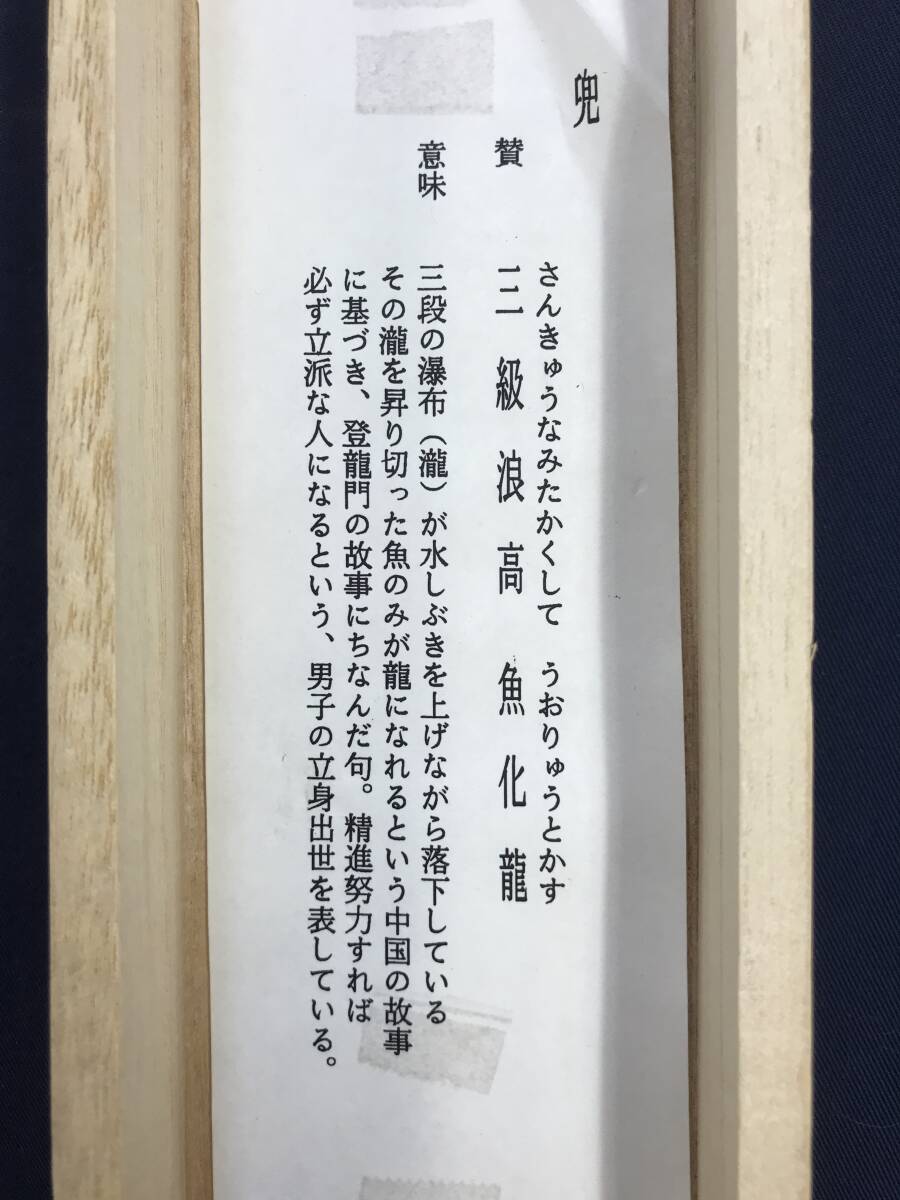 兜
さんきゅうなみたかくして うおりゅうとかす
賛 三級浪高 魚化龍
意味 三段の瀑布(瀧)が水しぶきを上げながら落下している
その瀧を昇り切った魚のみが龍になれるという中国の故事
に基づき、登龍門の故事にちなんだ句。精進努力すれば
必ず立派な人になるという、男子の立身出世を表している。